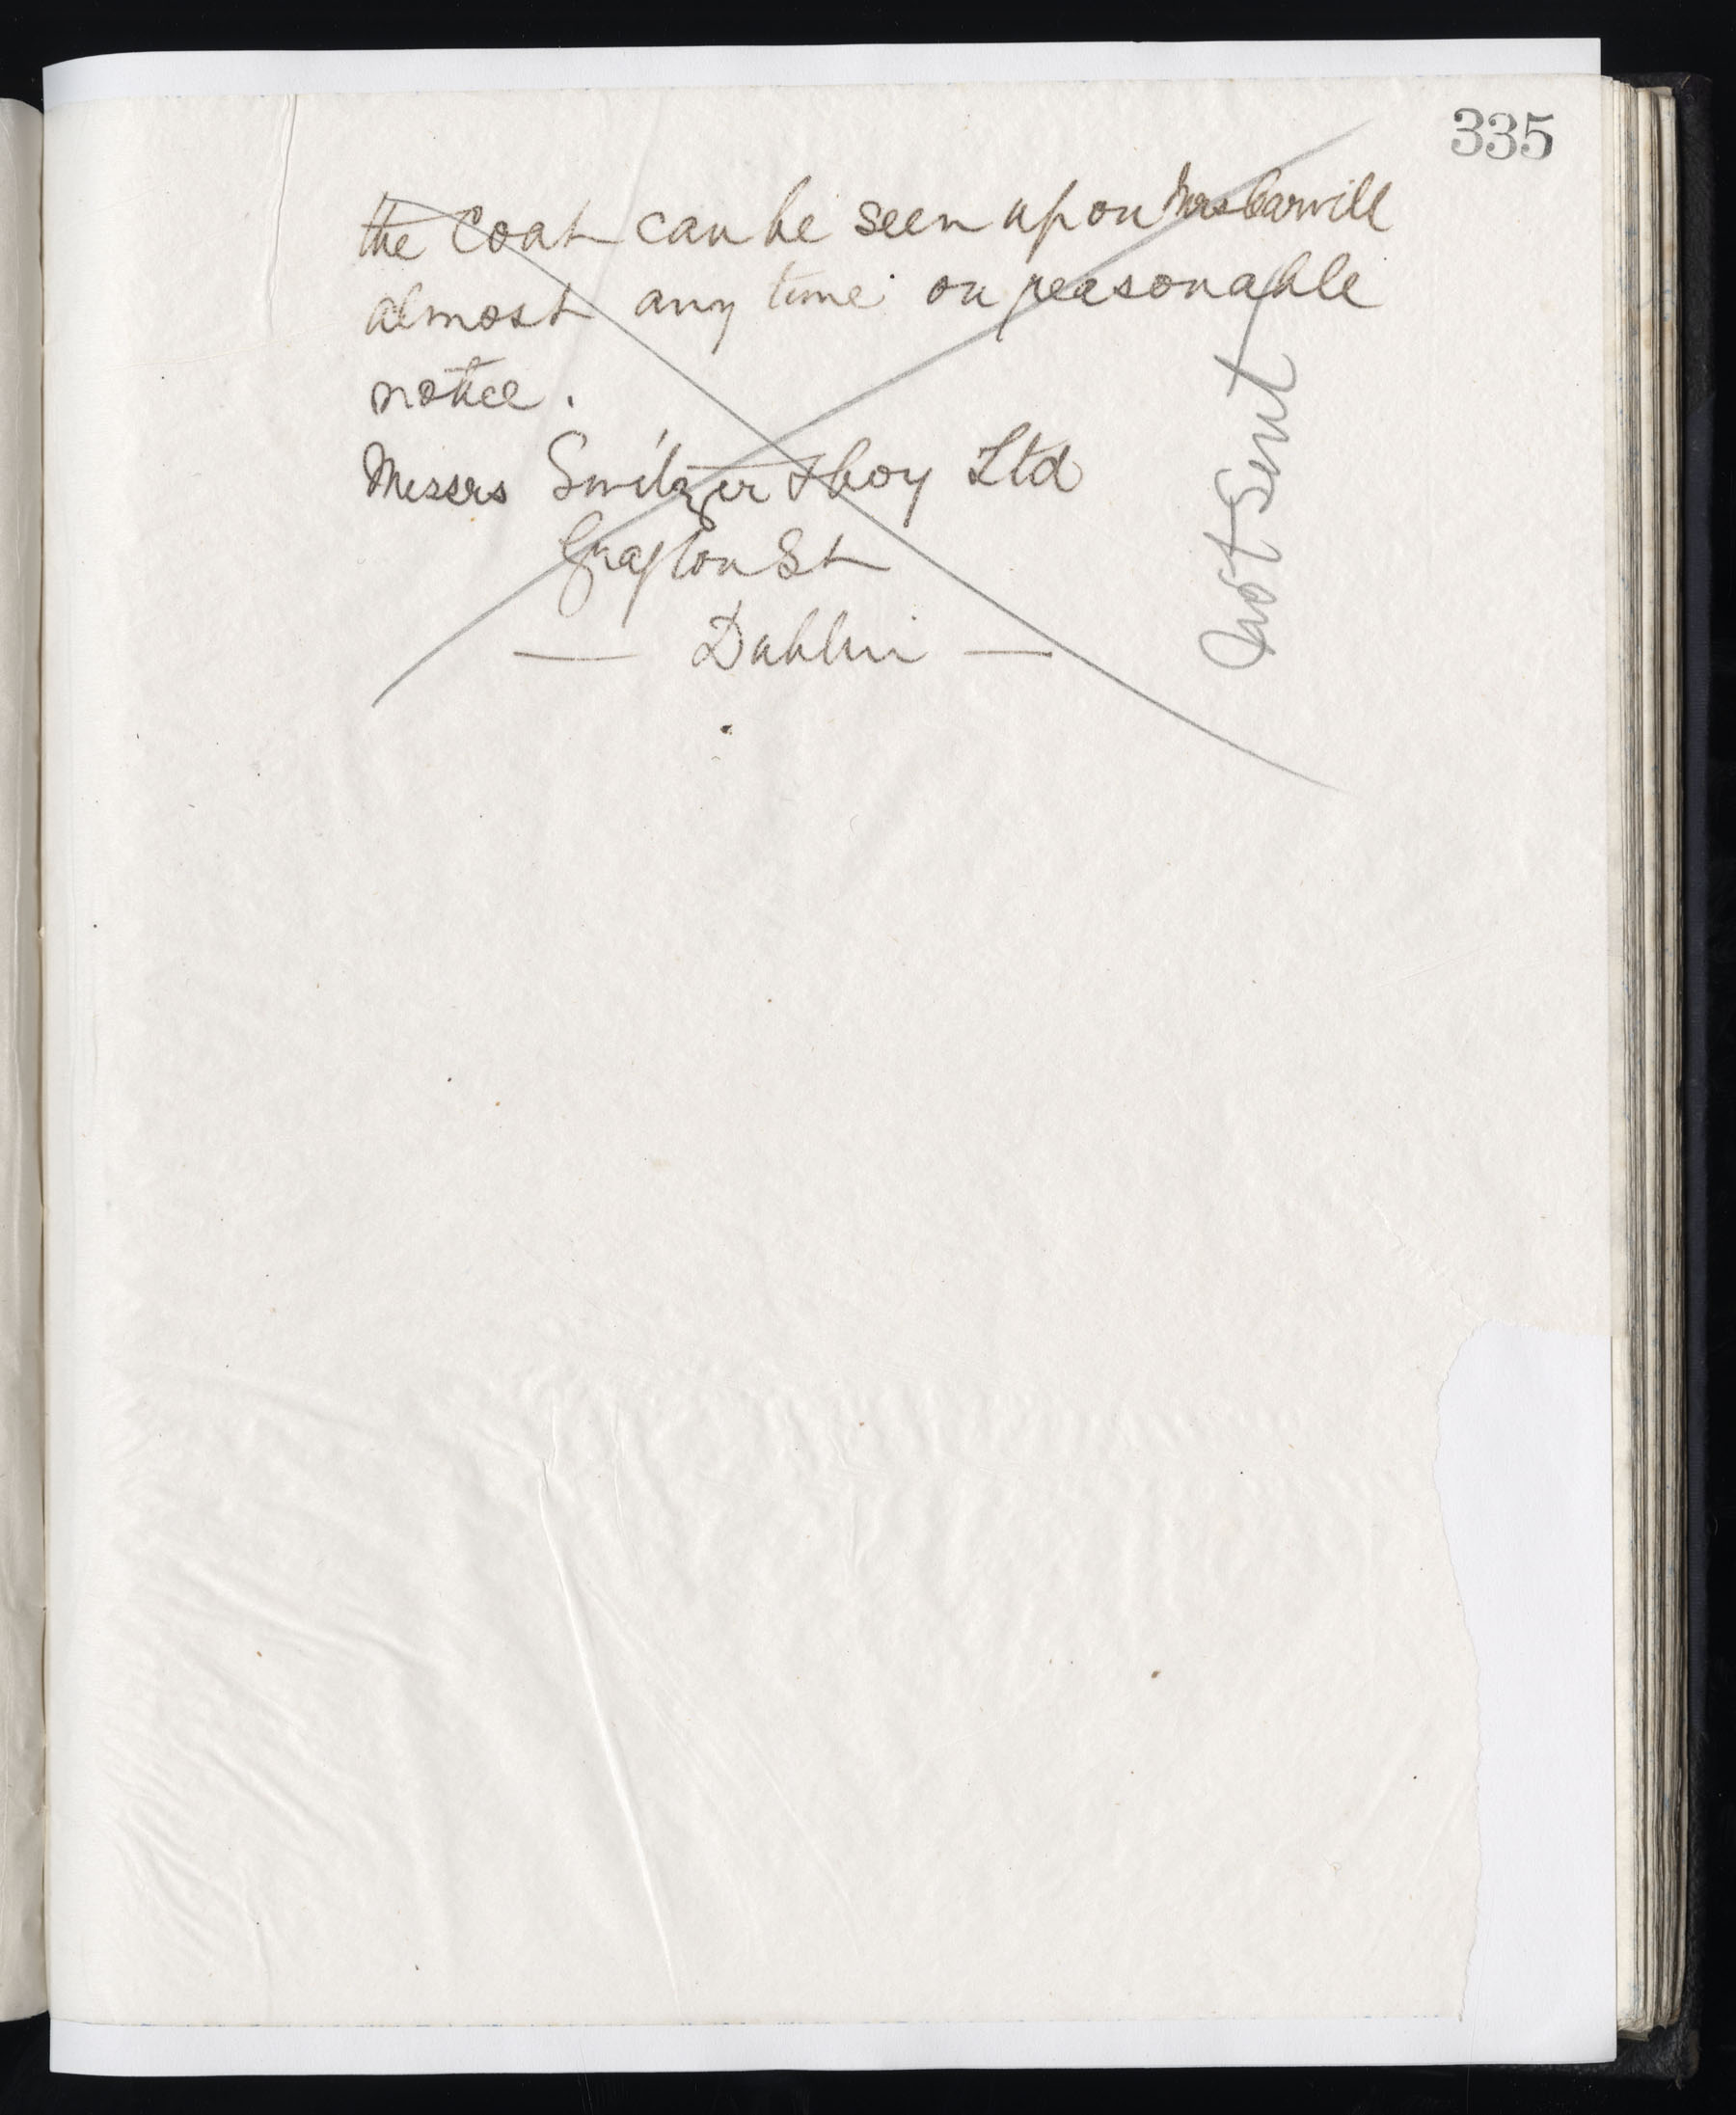 335
the Coat can be seen upon Mrs Carvill
almost any time on reasonable
notice.
Messrs Switzer & Coy Ltd
Grafton St
— Dublin —
Not Sent